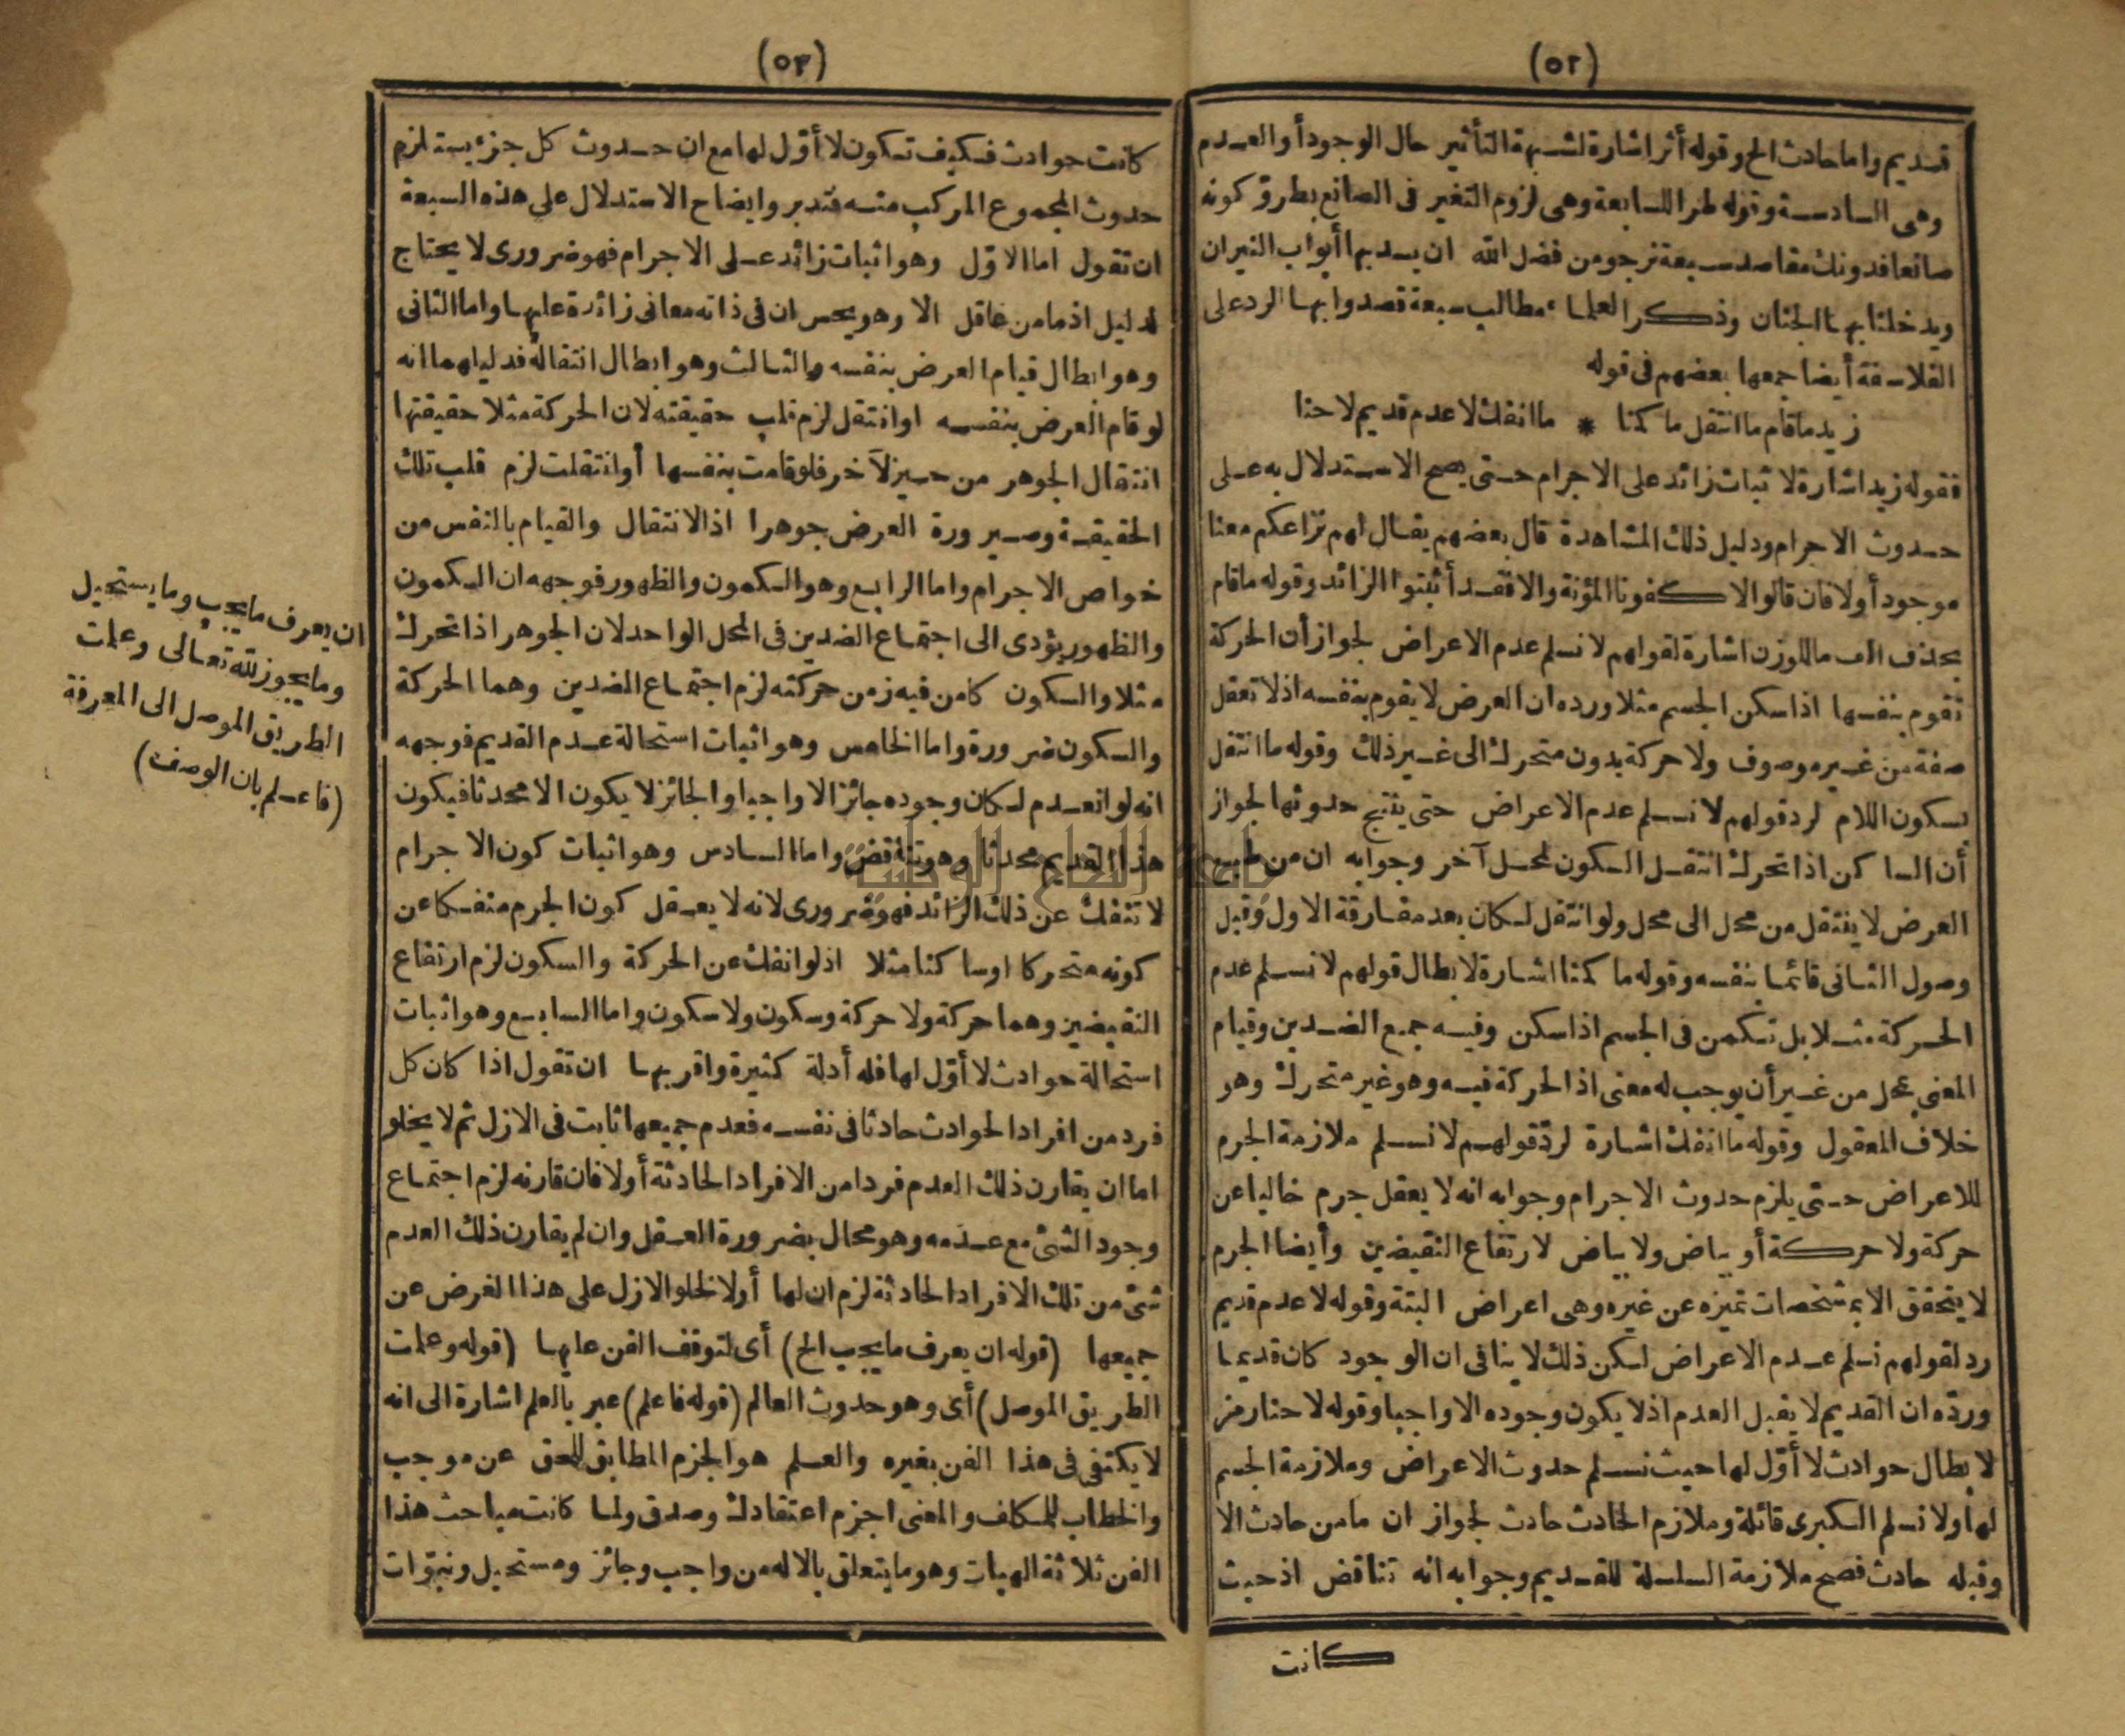 (٥٢)
قديم واما حادث الخ وقوله أثر اشارة لشبهة التأثير حال الوجود أو العدم
وهى السادسة وقوله طرا للسابعة وهى لزوم التغير فى الصانع بطرق كونه
صانعا فدونك مقاصد سبعة نرجو من فضل الله ان يسد بها أبواب النيران
ويدخلنا بها الجنان وذكر العلماء مطالب سبعة قصدوا بها الرد على
الفلاسفة أيضا جمعها بعضهم فى قوله
زيد ما قام ما انتقل ما كمنا * ما انفك لا عدم قديم لا حنا
فقوله زيد اشارة لاثبات زائد على الاجرام حتى يصح الاستدلال به على
حدوث الاجرام ودليل ذلك المشاهدة قال بعضهم يقال لهم نزاعكم معنا
موجود أو لا فان قالوا لا كفونا المؤنة والا فقد أثبتوا الزائد وقوله ما قام
بحذف الف ما للوزن اشارة لقولهم لا نسلم عدم الاعراض لجواز أن الحركة
تقوم بنفسها اذا سكن الجسم مثلا ورده ان العرض لا يقوم بنفسه اذ لا تعقل
صفة من غير موصوف ولا حركة بدون متحرك الى غير ذلك وقوله ما انتقل
بسكون اللام لرد قولهم لا نسلم عدم الاعراض حتى ينتج حدوثها لجواز
أن الساكن اذا تحرك انتقل السكون لمحل آخر وجوابه ان من طبع
العرض لا ينتقل من محل الى محل ولو انتقل لكان بعد مفارقة الاول وقبل
وصول الثانى قائما بنفسه وقوله ما كمنا اشارة لابطال قولهم لا نسلم عدم
الحركة مثلا بل تكمن فى الجسم اذا سكن وفيه جمع الضدين وقيام
المعنى بمحل من غير أن يوجب له معنى اذ الحركة فيه وهو غير متحرك وهو
خلاف المعقول وقوله ما انفك اشارة لردّ قولهم لا نسلم ملازمة الجرم
للاعراض حتى يلزم حدوث الاجرام وجوابه انه لا يعقل جرم خاليا عن
حركة ولا حركة أو بياض ولا بياض لارتفاع النقيضين وأيضا الجرم
لا يتحقق الا بمشخصات تميزه عن غيره وهى اعراض البتة وقوله لا عدم قديم
رد لقولهم نسلم عدم الاعراض لكن ذلك لا ينافى ان الوجود كان قديما
وردّه ان القديم لا يقبل العدم اذ لا يكون وجوده الا واجبا وقوله لا حنا رمز
لابطال حوادث لا أوّل لها حيث نسلم حدوث الاعراض وملازمة الجسم
لها ولا نسلم الكبرى قائلة وملازم الحادث حادث لجواز ان ما من حادث الا
وقبله حادث فصح ملازمة السلسلة للقديم وجوابه انه تناقض اذ حيث
كانت
(٥٣)
كانت حوادث فكيف تكون لا أوّل لها مع ان حدوث كل جزء يستلزم
حدوث المجموع المركب منه فتدبر وايضاح الاستدلال على هذه السبعة
ان تقول اما الاوّل وهو اثبات زائد على الاجرام فهو ضرورى لا يحتاج
لدليل اذ ما من عاقل الا وهو يحس ان فى ذاته معانى زائدة عليها واما الثانى
وهو ابطال قيام العرض بنفسه والثالث وهو ابطال انتقاله فدليلهما انه
لو قام العرض بنفسه او انتقل لزم قلب حقيقته لان الحركة مثلا حقيقتها
انتقال الجوهر من حيز لآخر فلو قامت بنفسها أو انتقلت لزم قلب تلك
الحقيقة وصيرورة العرض جوهرا اذ الانتقال والقيام بالنفس من
خواص الاجرام واما الرابع وهو الكمون والظهور فوجهه ان الكمون
والظهور يؤدى الى اجتماع الضدين فى المحل الواحد لان الجوهر اذا تحرك
مثلا والسكون كامن فيه زمن حركته لزم اجتماع الضدين وهما الحركة
والسكون ضرورة واما الخامس وهو اثبات استحالة عدم القديم فوجهه
انه لو انعدم لكان وجوده جائزا لا واجبا والجائز لا يكون الا محدثا فيكون
هذا القديم محدثا وهو تناقض واما السادس وهو اثبات كون الاجرام
لا تنفك عن ذلك الزائد فهو ضرورى لانه لا يعقل كون الجرم منفكا عن
كونه متحركا او ساكنا مثلا اذ لو انفك عن الحركة والسكون لزم ارتفاع
النقيضين وهما حركة ولا حركة وسكون ولا سكون واما السابع وهو اثبات
استحالة حوادث لا أوّل لها فله أدلة كثيرة واقربها ان تقول اذا كان كل
فرد من افراد الحوادث حادثا فى نفسه فعدم جميعها ثابت فى الازل ثم لا يخلو
اما ان يقارن ذلك العدم فردا من الافراد الحادثة أو لا فان قارنه لزم اجتماع
وجود الشئ مع عدمه وهو محال بضرورة العقل وان لم يقارن ذلك العدم
شئ من تلك الافراد الحادثة لزم ان لها أولا لخلو الازل على هذا الفرض عن
جميعها (قوله ان يعرف ما يجب الخ) أى لتوقف الفن عليها (قوله وعلمت
الطريق الموصل) أى وهو حدوث العالم (قوله فاعلم) عبر بالعلم اشارة الى انه
لا يكتفى فى هذا الفن بغيره والعلم هو الجزم المطابق للحق عن موجب
والخطاب للمكلف والمعنى اجزم اعتقادك وصدق ولما كانت مباحث هذا
الفن ثلاثة الهيات وهو ما يتعلق بالاله من واجب وجائز ومستحيل ونبوّات
ان يعرف ما يجب وما يستحيل
وما يجوز لله تعالى وعلمت
الطريق الموصل الى المعرفة
(فاعلم بان الوصف)